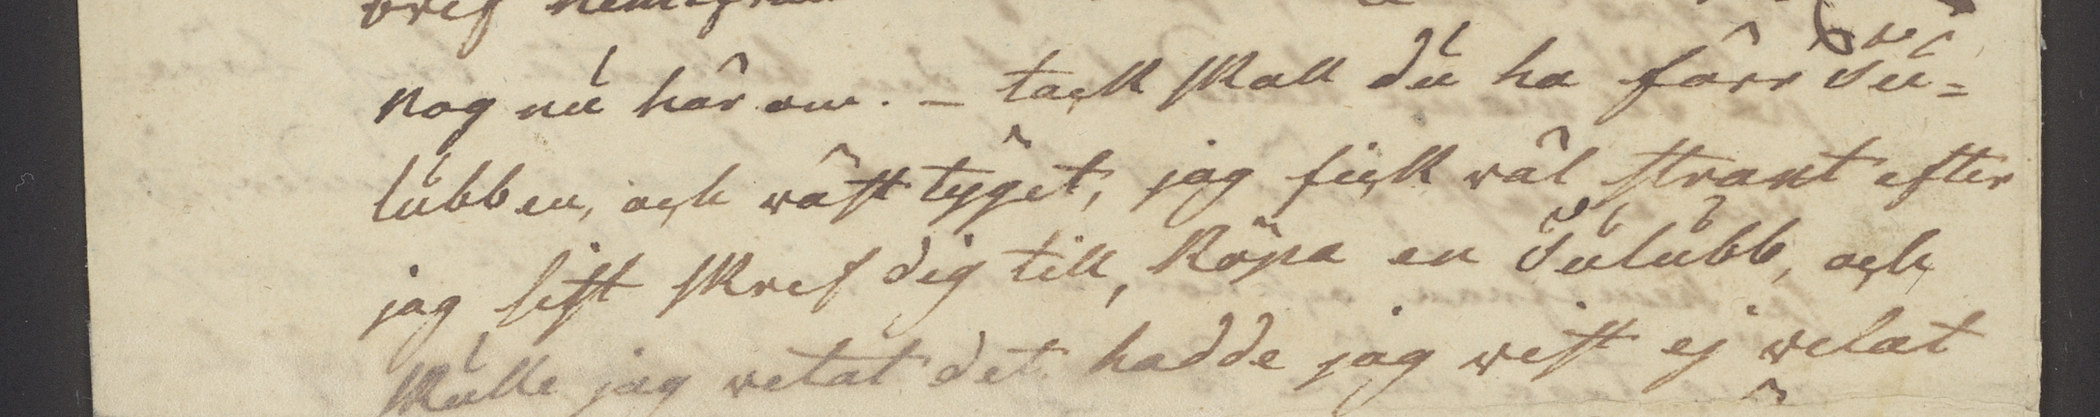 bref hemifrån
nog nu här om. – tack skall du ha förr Su=
lubben, och västtyget, jag fick väl strant efter
jag sist skref dig till, köpa en Sulubb, och
skulle jag vetat det hadde jag vist ej velat